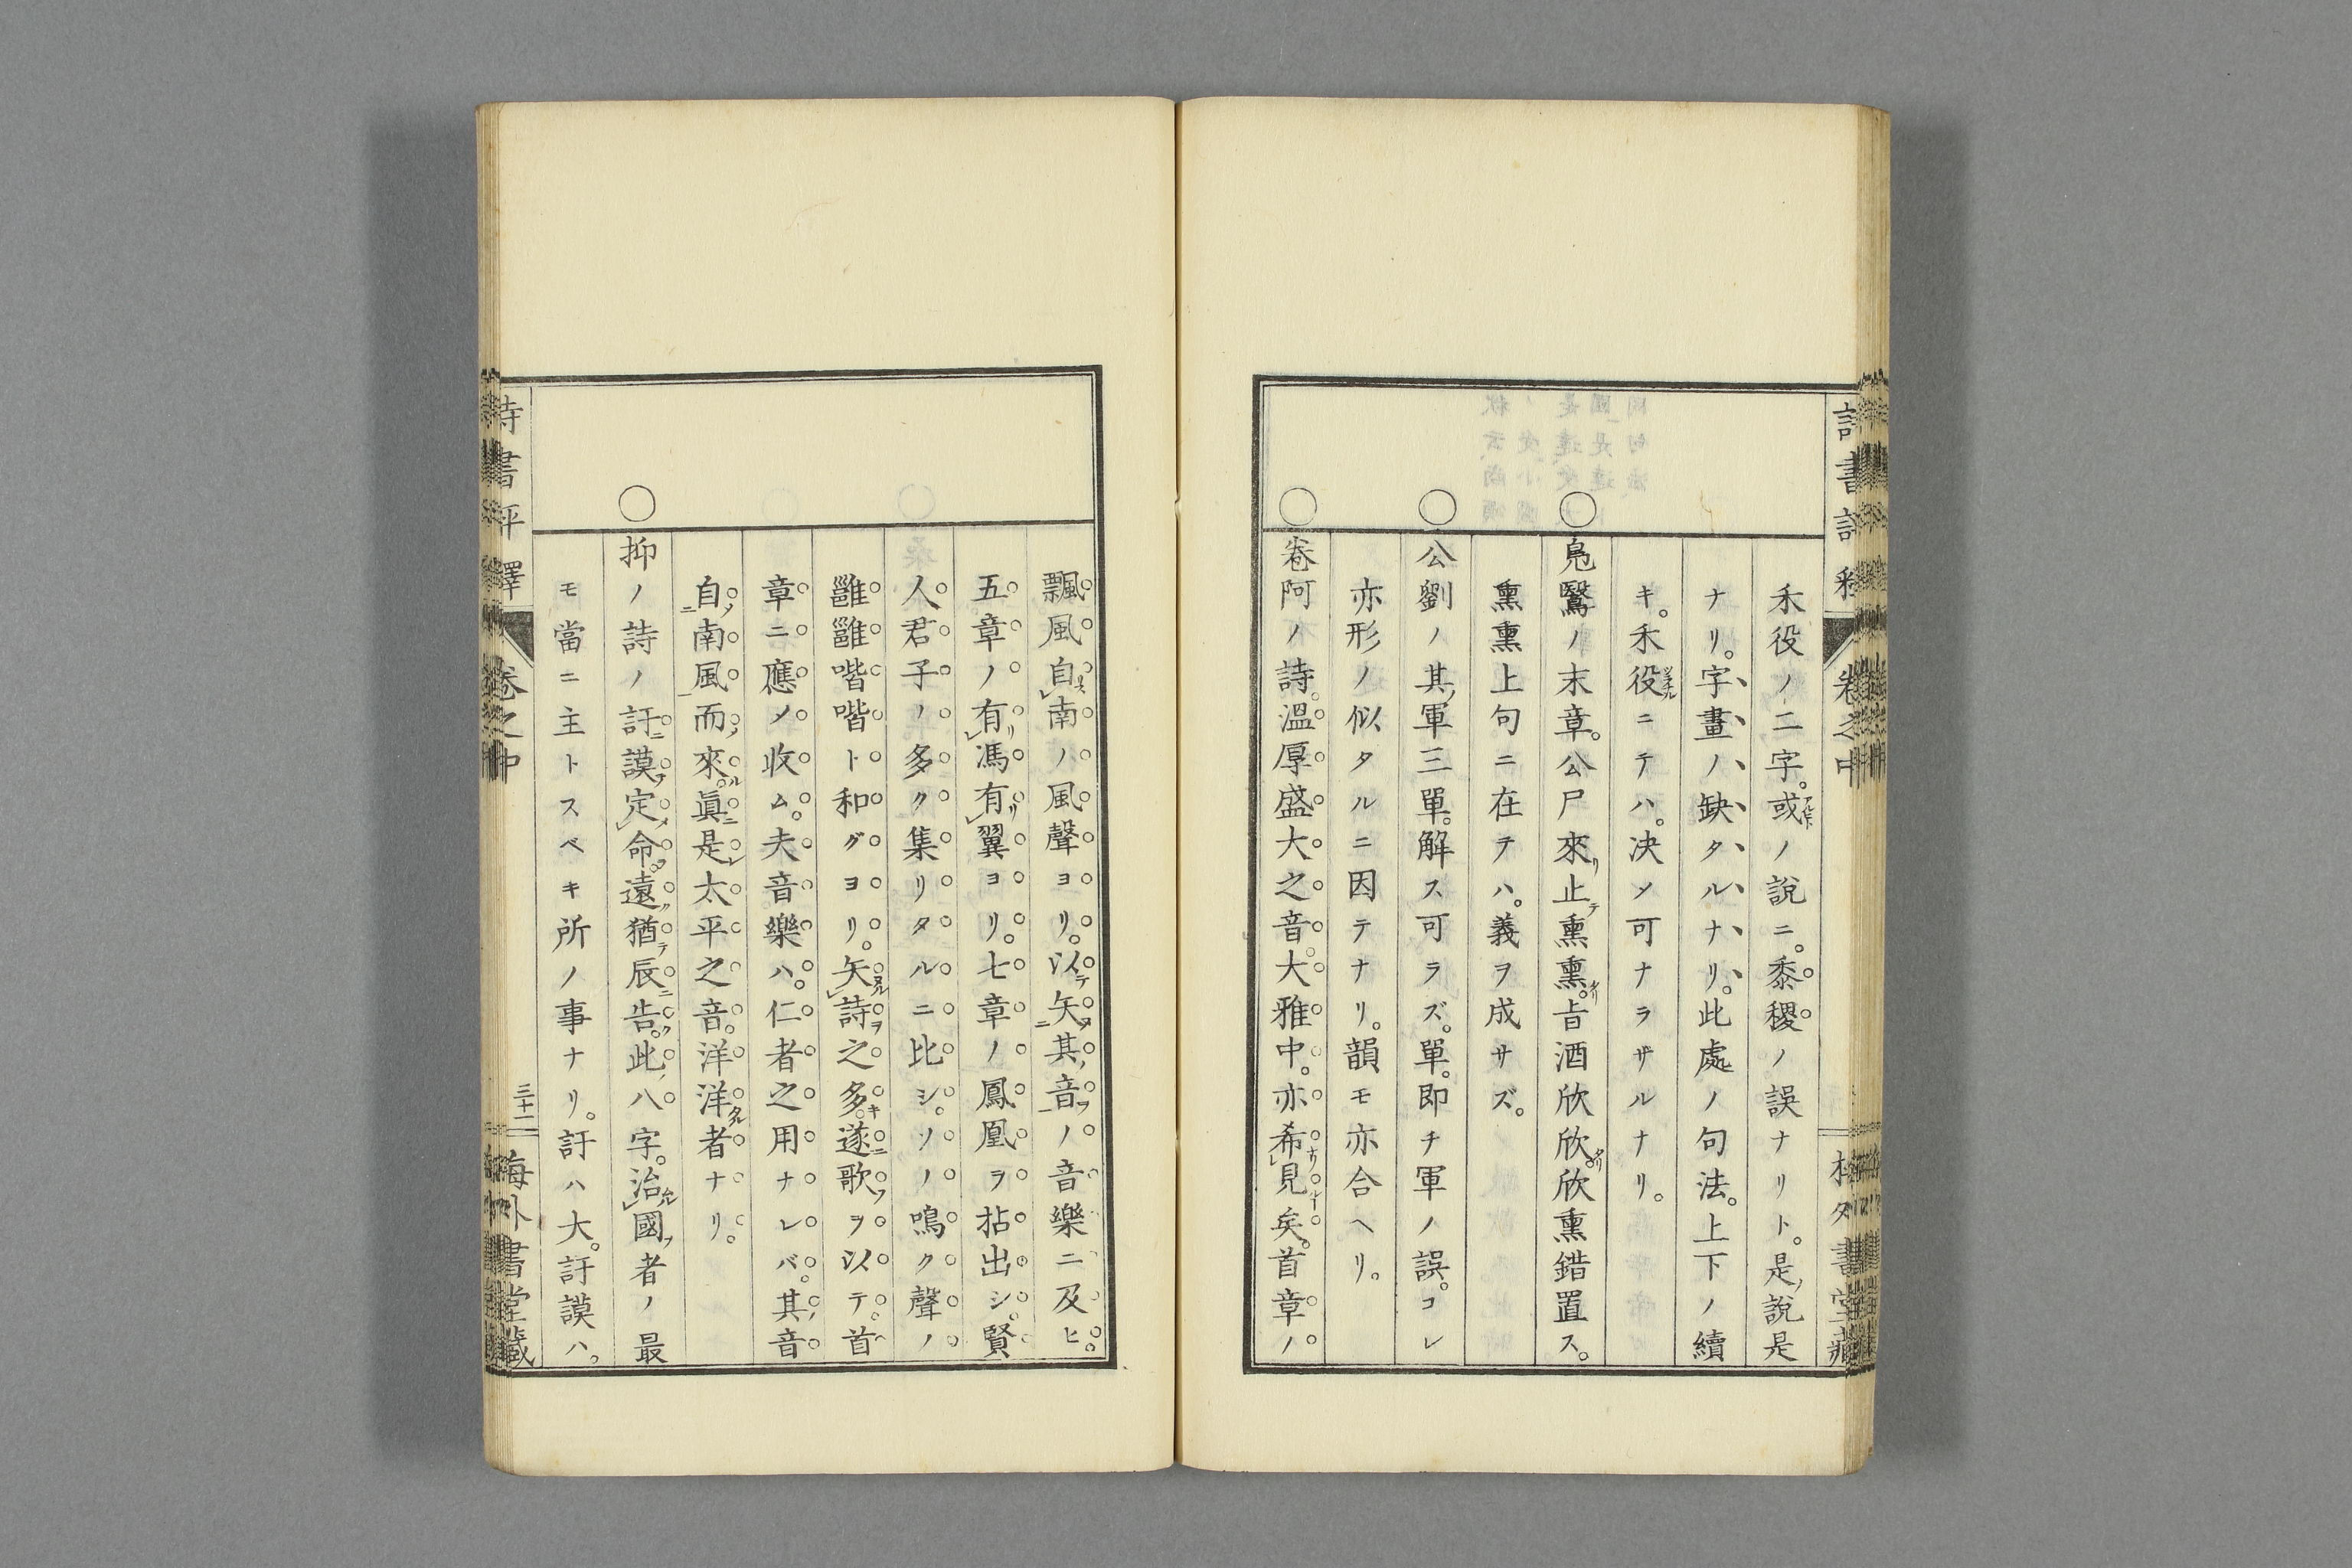 禾役ノ二字。或ノ說ニ。黍稷ノ誤ナリト。是ノ說是
ナリ。字畫ノ缺タルナリ。此處ノ句法。上下ノ續
キ。禾役ニテハ。决メ可ナラザルナリ。
鳧鷖ノ末章。公尸來リ止テ熏熏。旨酒欣欣。欣熏錯置ス。
熏熏上句ニ在テハ。義ヲ成サズ。
公劉ノ其ノ軍三單。解ス可ラズ。單。即チ軍ノ誤。コレ
亦形ノ似タルニ因テナリ。韻モ亦合ヘリ。
卷阿ノ詩。溫厚盛大之音。大雅中。亦希見矣。首章ノ
飄風自南ノ風聲ヨリ。以矢其音ノ音樂ニ及ヒ。
五章ノ有馮有翼ヨリ。七章ノ鳳凰ヲ拈出シ。賢
人君子ノ多ク集リタルニ比シ。ソノ鳴ク聲ノ
雝雝喈喈ト和グヨリ。矢詩之多。遂歌ヲ以テ首
章ニ應メ收ム。夫音樂ハ。仁者之用ナレバ。其音
自南風而來。眞是太平之音。洋洋者ナリ。
抑ノ詩ノ訏謨定命。遠猶辰告。此八字。治國者ノ最
モ當ニ主トスベキ所ノ事ナリ。訏ハ大。訏謨ハ。
詩書評釋 卷之中 三十二 梅外書堂藏